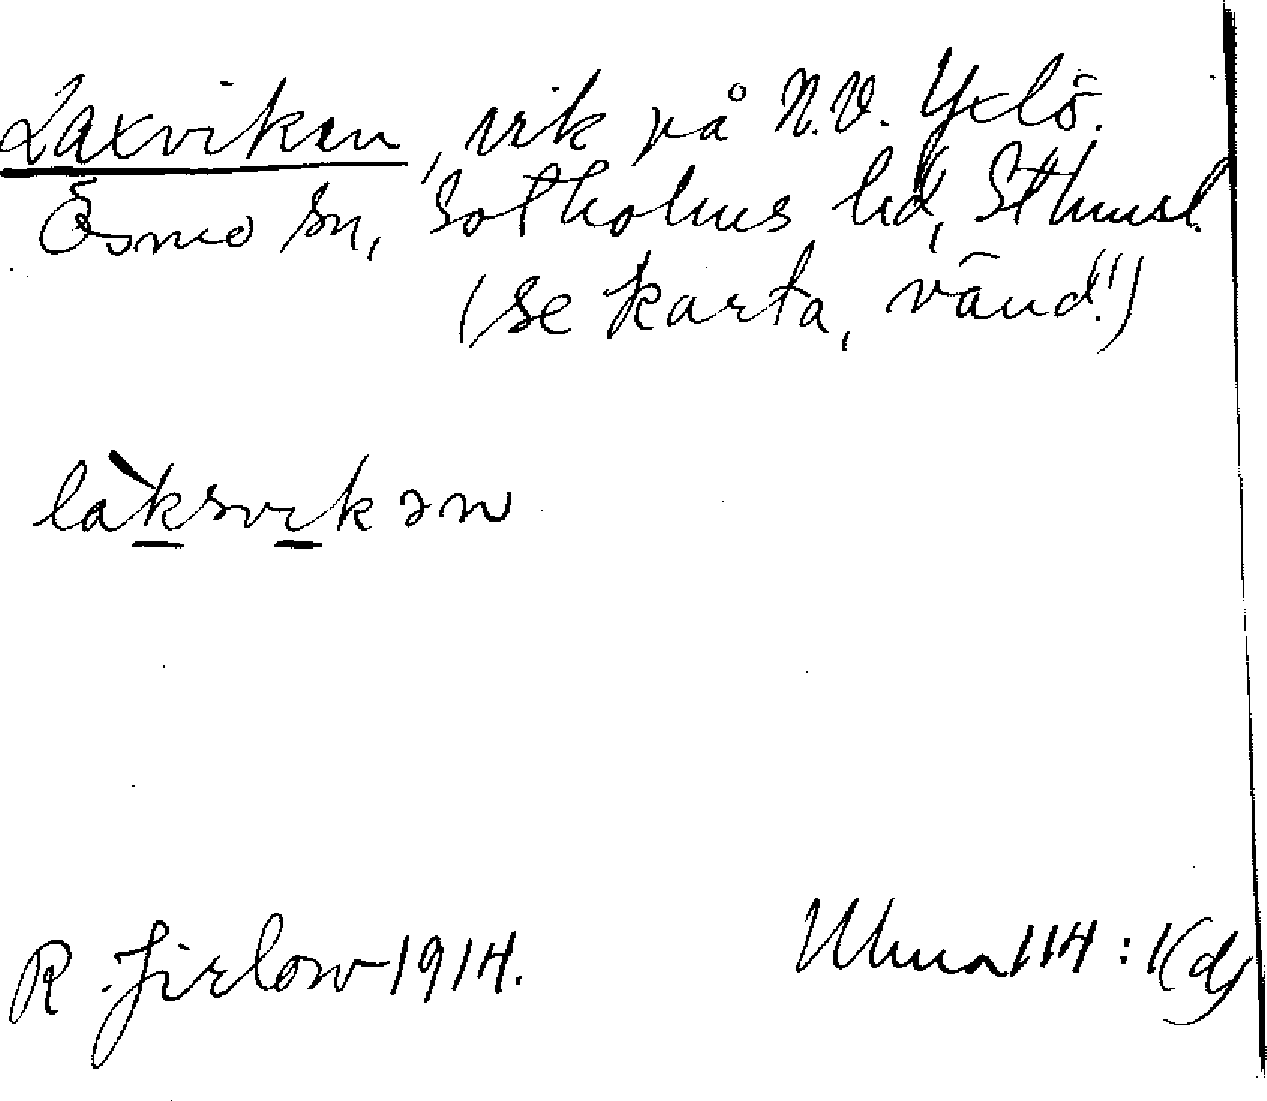 Laxviken, vik på N.V. Yxlö.
Ösmo sn, Sotholms hd, Sthmsl.
(se karta, vänd!)
làksvikən
R. Jirlow 1914.
114: